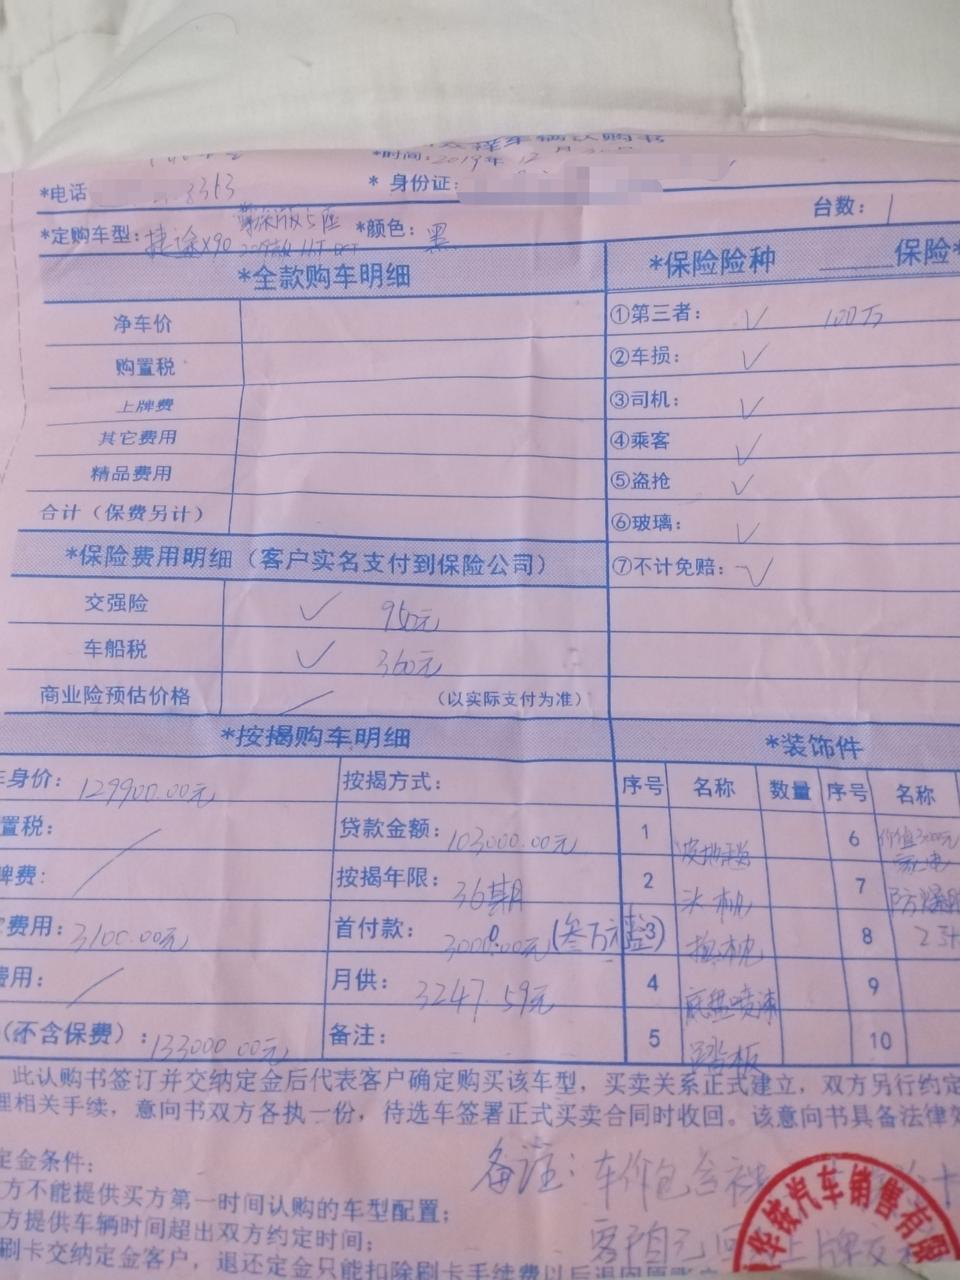 车辆认购书
*时间:2019年12月
*电话 8363 * 身份证:
台数: 1
*定购车型:捷途X90 5座 *颜色:黑
*全款购车明细 *保险险种 保险*
净车价 ①第三者: ✓ 100万
购置税 ②车损: ✓
上牌费 ③司机: ✓
其它费用 ④乘客 ✓
精品费用 ⑤盗抢 ✓
合计(保费另计) ⑥玻璃: ✓
*保险费用明细(客户实名支付到保险公司) ⑦不计免赔: ✓
交强险 ✓ 950元
车船税 ✓ 360元
商业险预估价格 (以实际支付为准)
*按揭购车明细 *装饰件
身价: 129900.00元 按揭方式: 序号 名称 数量 序号 名称
置税: 贷款金额: 103000.00元 1 6 价值3000元
牌费: 按揭年限: 36期 2 头枕 7
费用: 3100.00元 首付款: 30000.00元(叁万元整) 3 8
费用: 月供: 3247.59元 4 底盘喷漆 9
(不含保费): 133000.00元 备注: 5 踏板 10
此认购书签订并交纳定金后代表客户确定购买该车型，买卖关系正式建立，双方另行约定
理相关手续，意向书双方各执一份，待选车签署正式买卖合同时收回。该意向书具备法律效
定金条件: 备注: 车价包含
方不能提供买方第一时间认购的车型配置;
方提供车辆时间超出双方约定时间; 客户自己 上牌
刷卡交纳定金客户，退还定金只能扣除刷卡手续费以后退回原账户
华铖汽车销售有限